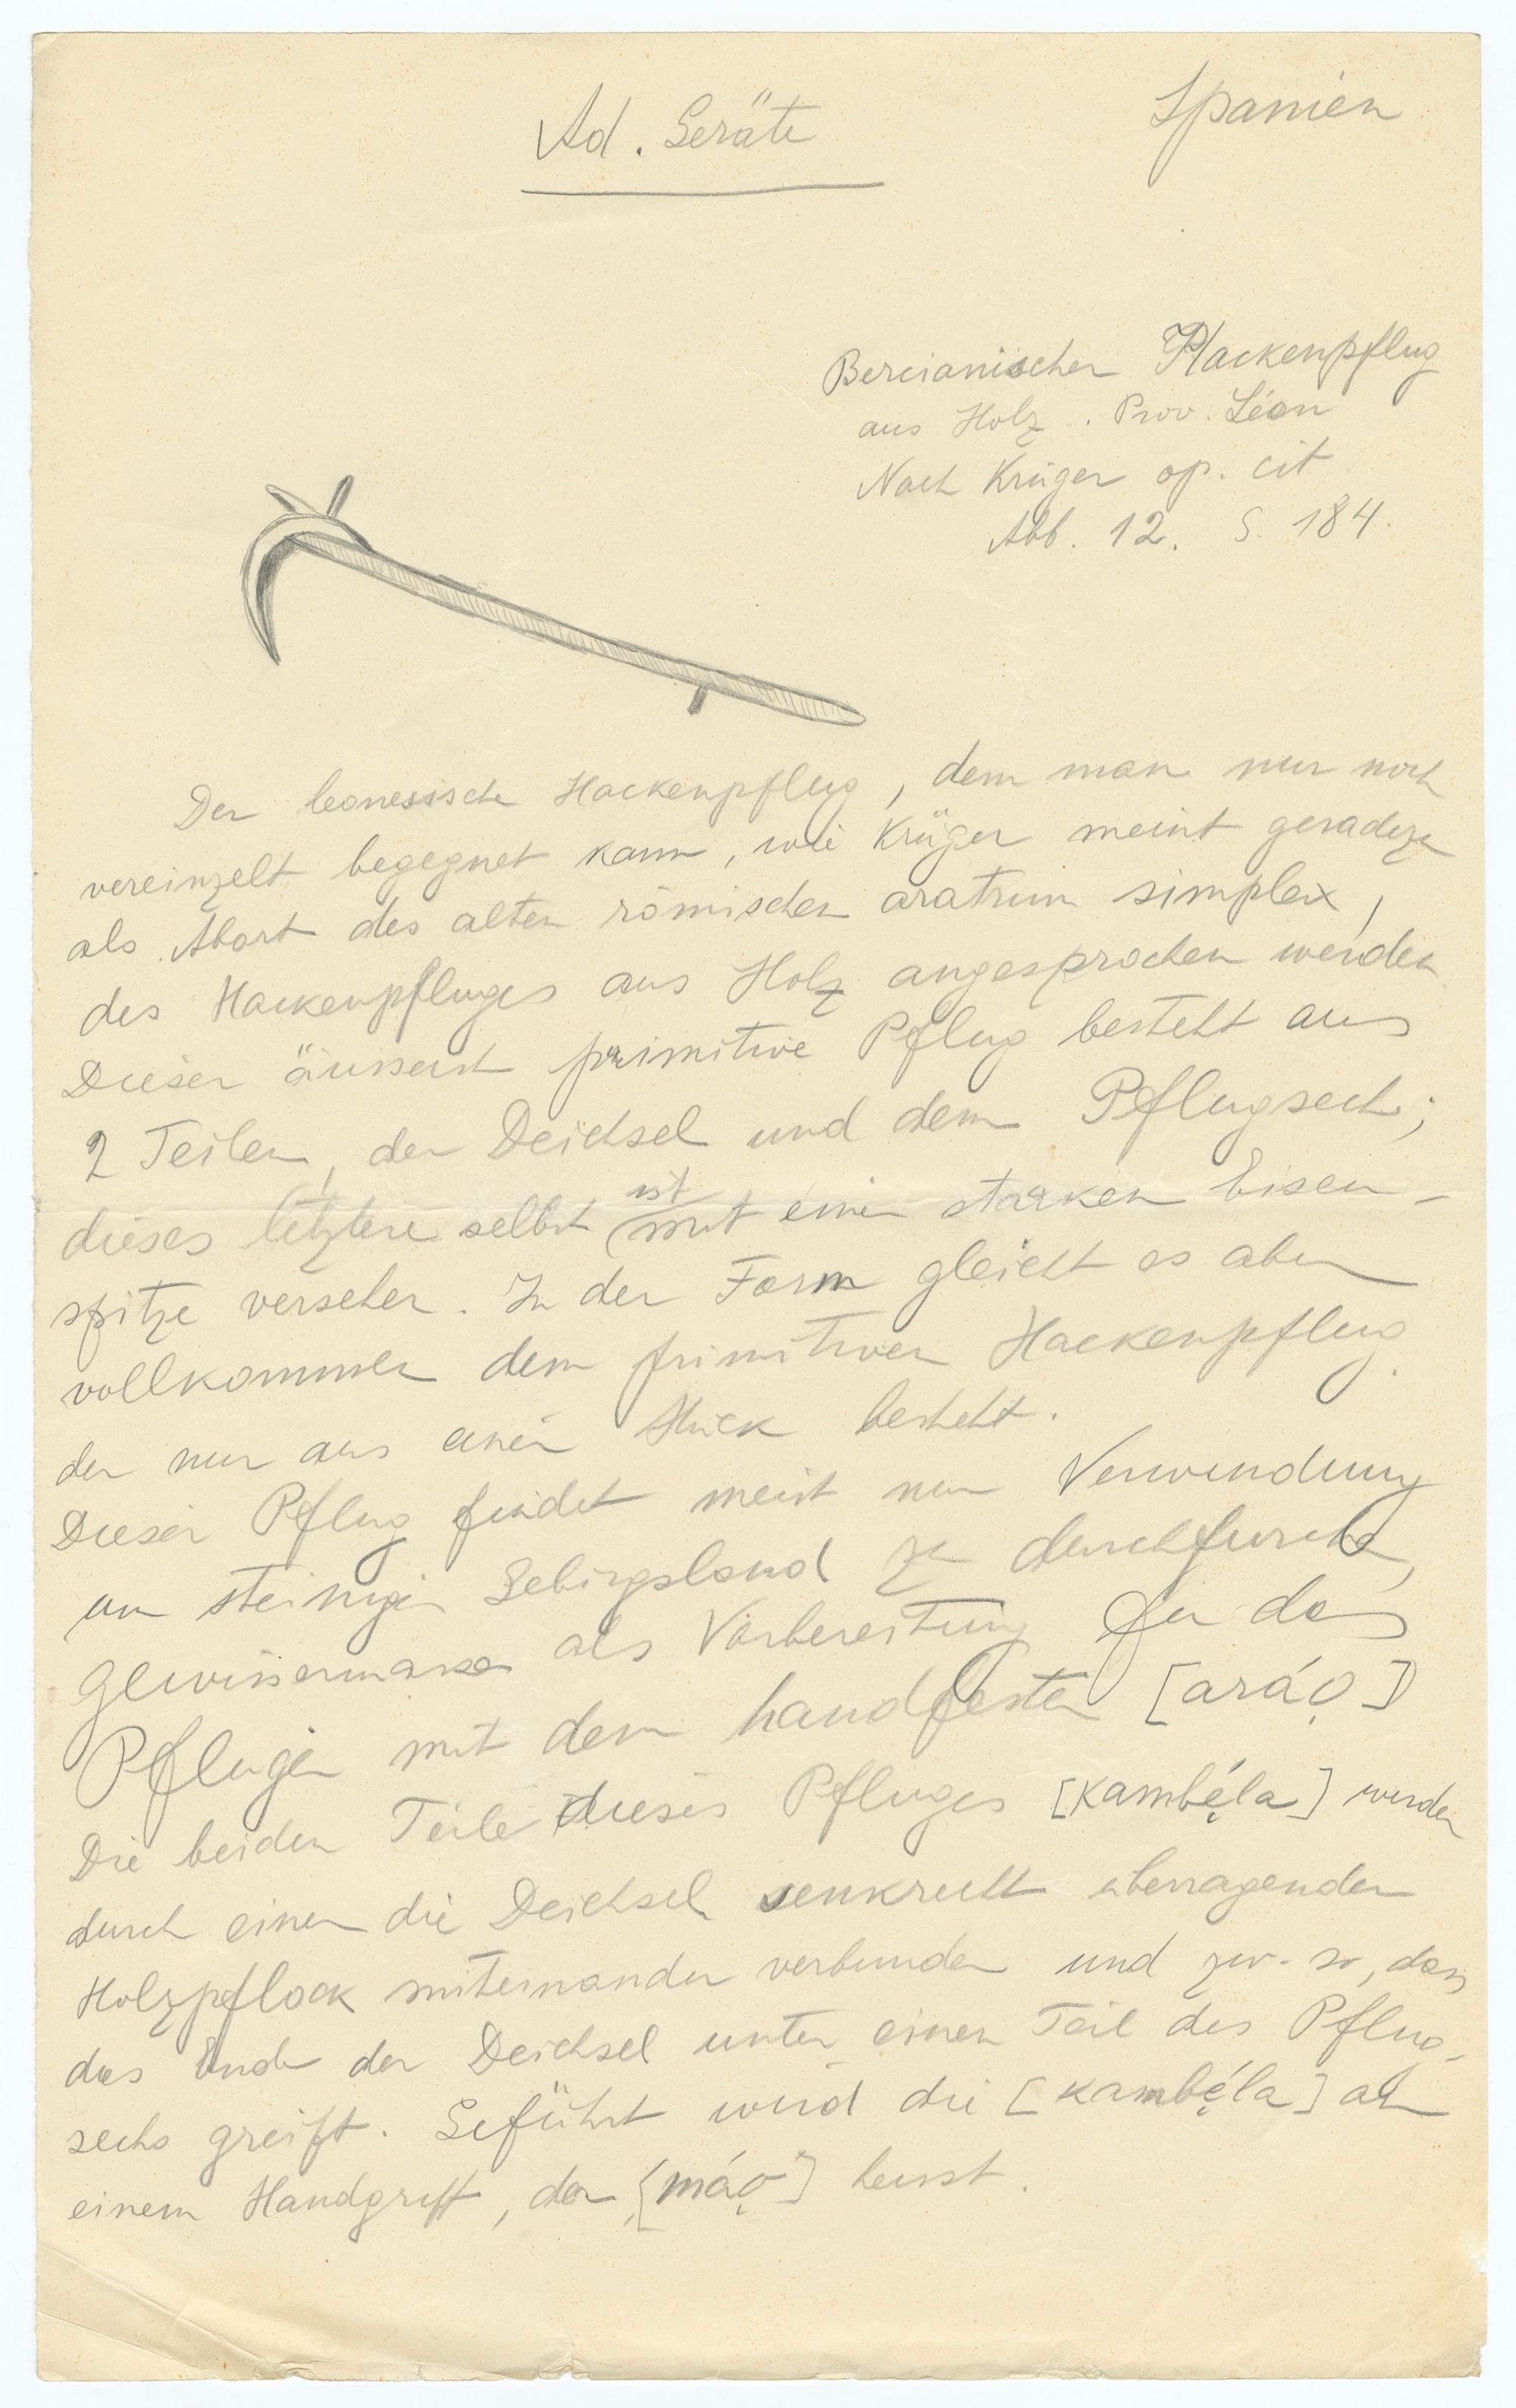 Spanien
Ad. Geräte
Bercianischer Hackenpflug
aus Holz. Prov. Léon
Nach Krüger op. cit
Abb. 12. S. 184.
Der leonesische Hackenpflug, dem man nur noch
vereinzelt begegnet kann, wie Krüger meint geradezu
als Abart des alten römischen aratrum simplex,
des Hackenpfluges aus Holz angesprochen werden
Dieser äusserst primitive Pflug besteht aus
2 Teilen, der Deichsel und dem Pflugsech;
dieses letztere selbst ist mit einer starken Eisen-
spitze versehen. In der Form gleicht es aber
vollkommen dem primitiven Hackenpflug
der nur aus einem Stück besteht.
Dieser Pflug findet meist nur Verwendung
um steiniges Gebirgsland zu durchfurchen,
gewissermassen als Vorbereitung für das
Pflügen mit dem handfesten [aráǫ]
Die beiden Teile dieses Pfluges [kambę́la] werden
durch einen die Deichsel senkrecht überragenden
Holzpflock miteinander verbunden und zw. so, dass
das Ende der Deichsel unter einen Teil des Pflug-
sechs greift. Geführt wird die [kambę́la] an
einem Handgriff, der [máǫ] heisst.